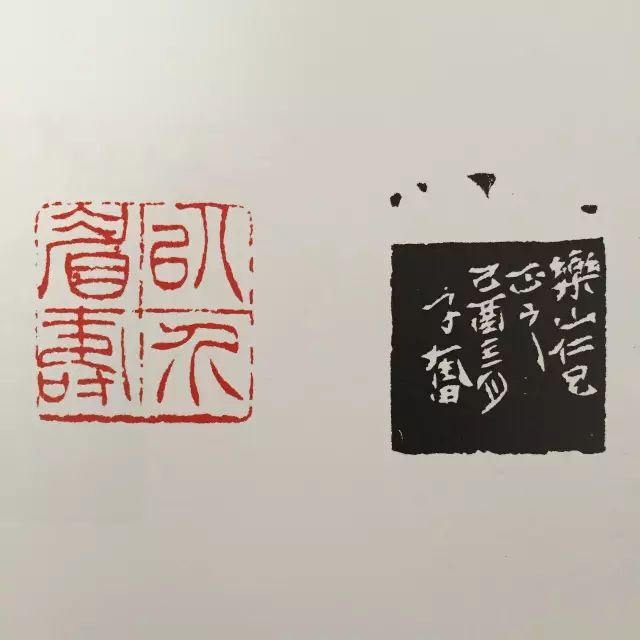 以介
眉壽
樂山仁兄
正之
己酉三月
子奮